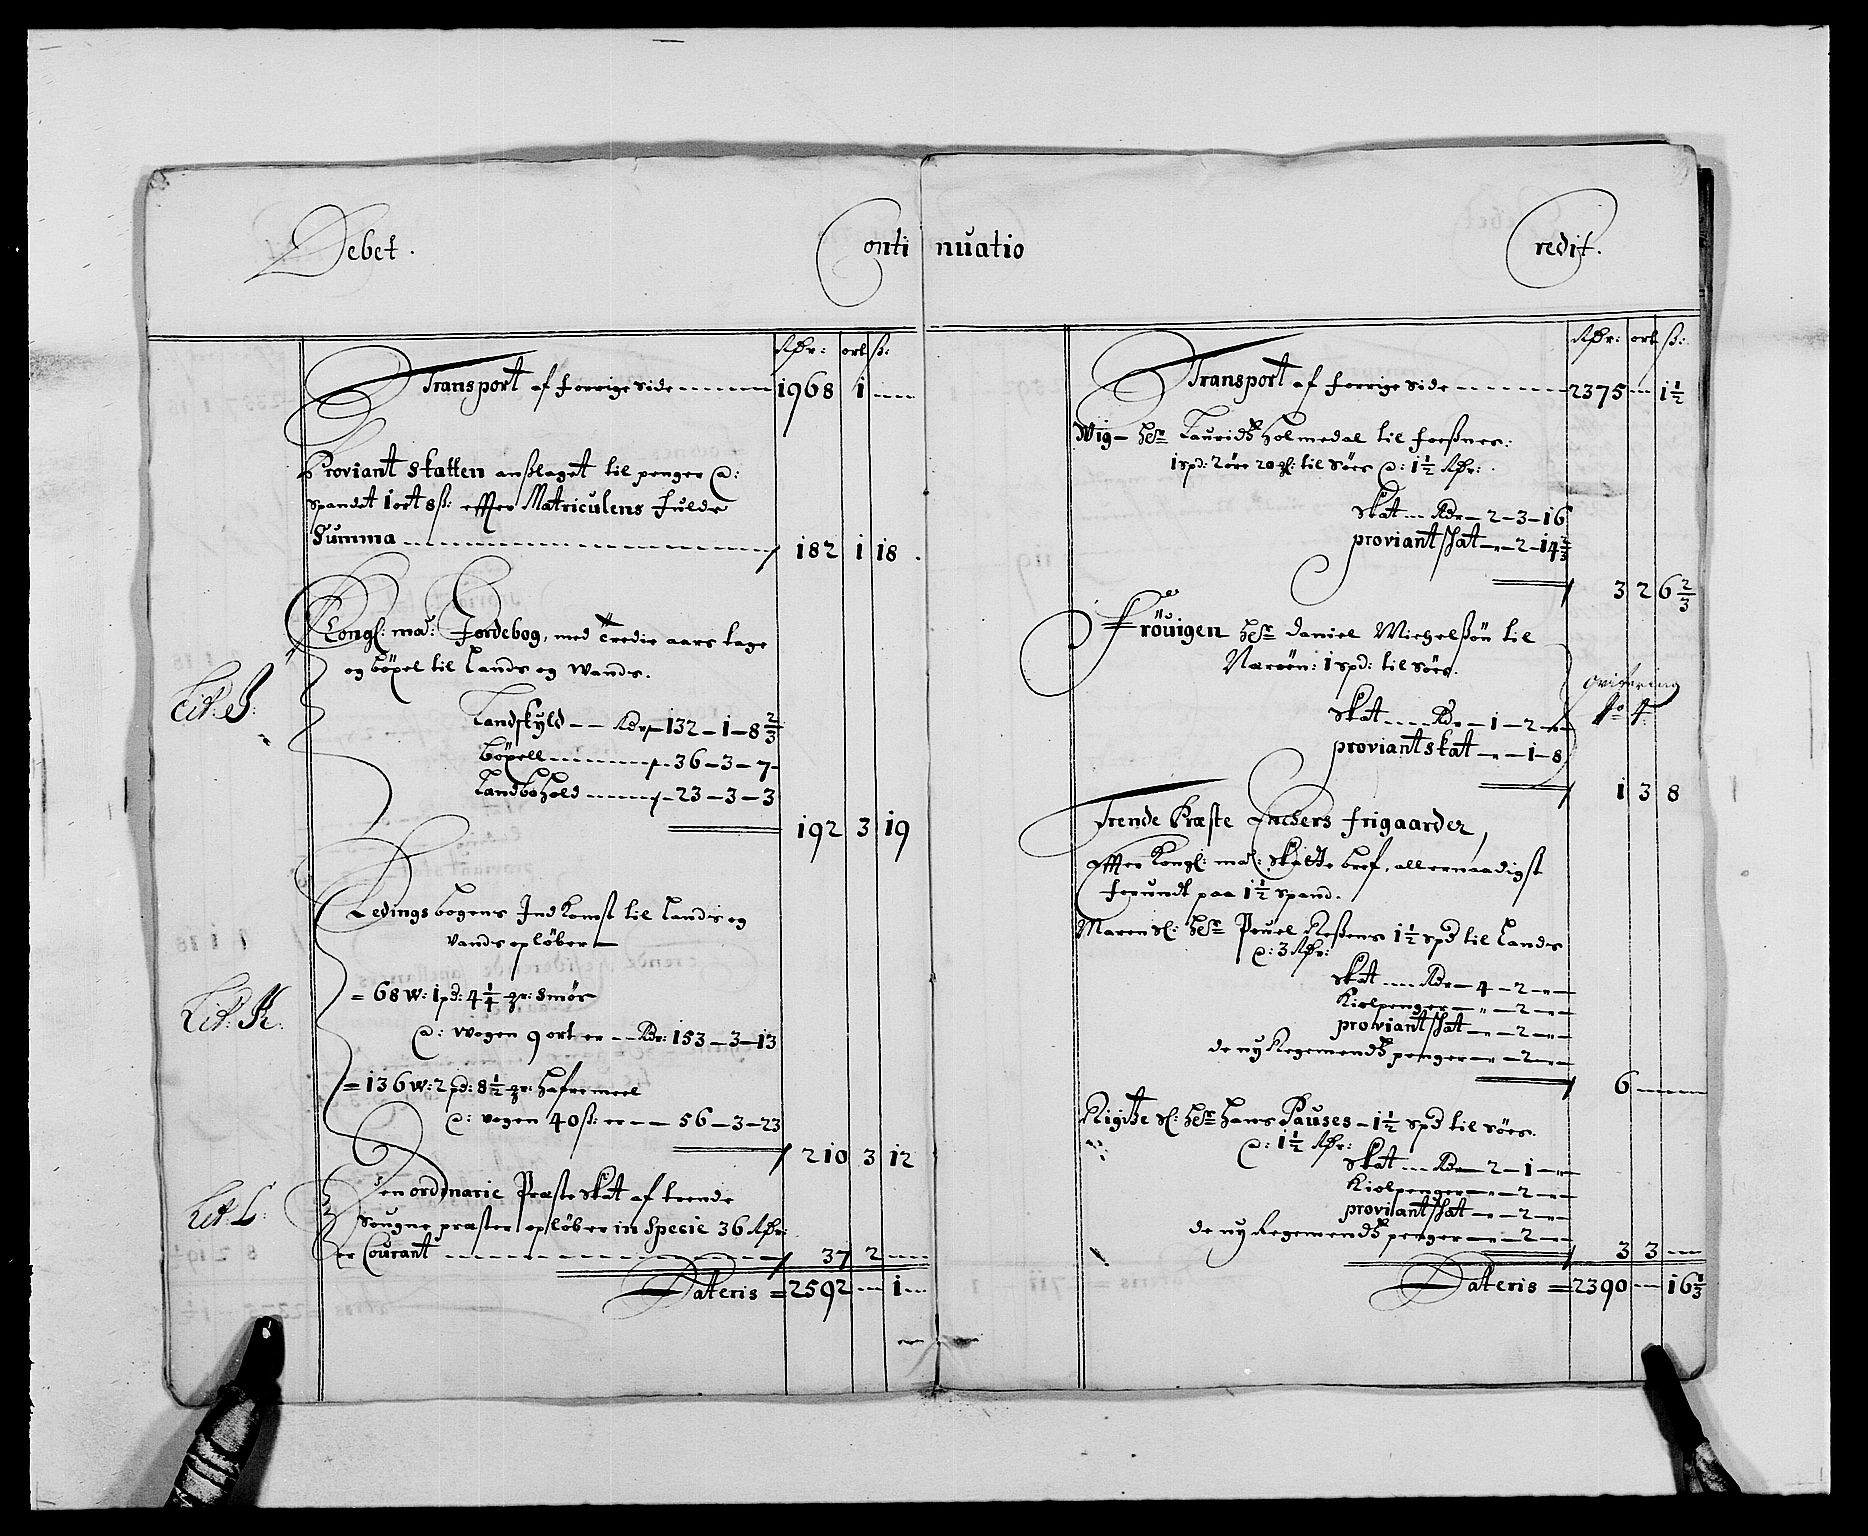 Debet. Continuatio Credit.
Rdr: ort ß:
Transport af forrige side 1968 1 —
Proviant Skatten anßlaget til penger @:
Spandet 1 ort 8 ß: effter Matriculens fulde
Summa 182 1 18.
Lit: J:
Kongl: ma: Jordebog, med tredie aars tage
og böxel til Lands og Wands.
Landskyld — Rdr — 132 — 1 — 8 2/3
böxell — 36 — 3 — 7 —
Landbohold — 23 — 3 — 3
192 3 19
Ledings bogens Indkomst til Lands og
Vands opløber —
Lit: K:
= 68 W: 1 pd: 4 1/4 mr: Smør
@: Wogen 9 ort er — Rdr: 153 — 3 — 13
= 136 W: 2 pd: 8 1/2 mr: hafremeel
@: vogen 40 ß: er — 56 — 3 — 23
210 3 12
Lit: L:
Den ordinarie Præste Skat af trende
Sougne præster opløber in Specie 36 Rdr:
er Courant 37 2 —
Lateris = 2592 — 1 —
Rdr: ort ß:
Transport af forrige side 2375 — 1 1/2
Wig — Hr Lauridtz Holmedal til foeßnes:
1 spd: 2 øre 20 mr: til Söes @: 1 1/2 Rdr:
Skat — Rdr — 2 — 3 — 16
proviantskat — " — 2 — 14 2/3
3 2 6 2/3
Fröuigen Hr Daniel Michelßön til
Næröen: 1 spd: til Söes.
qvitering
No 4:
Skat — Rdr — 1 — 2 — " —
proviantskat — " — 1 — 8
1 3 8
Trende Præste Enckers frigaarder,
effter Kongl: ma: Skatte bref, allernaadigst
forundt paa 1 1/2 Spand.
Maren Sl: Hr Pouel Neßens 1 1/2 spd til Lands
@: 3 Rdr:
Skat — Rdr — 4 — 2 — " —
Kiolpenger — " — 2 — " —
proviantskat — " — 2 — " —
de ny Regementz penger — " — 2 — " —
6 — —
Rigitze Sl: Hr Hans Pauses — 1 1/2 spd til Söes.
@: 1 1/2 Rdr:
Skat — Rdr — 2 — 1 — " —
Kiolpenger — " — 2 — " —
proviantskat — " — 2 — " —
de ny Regementz penger — " — 2 — " —
3 3 —
Lateris = 2390 — 16 1/3